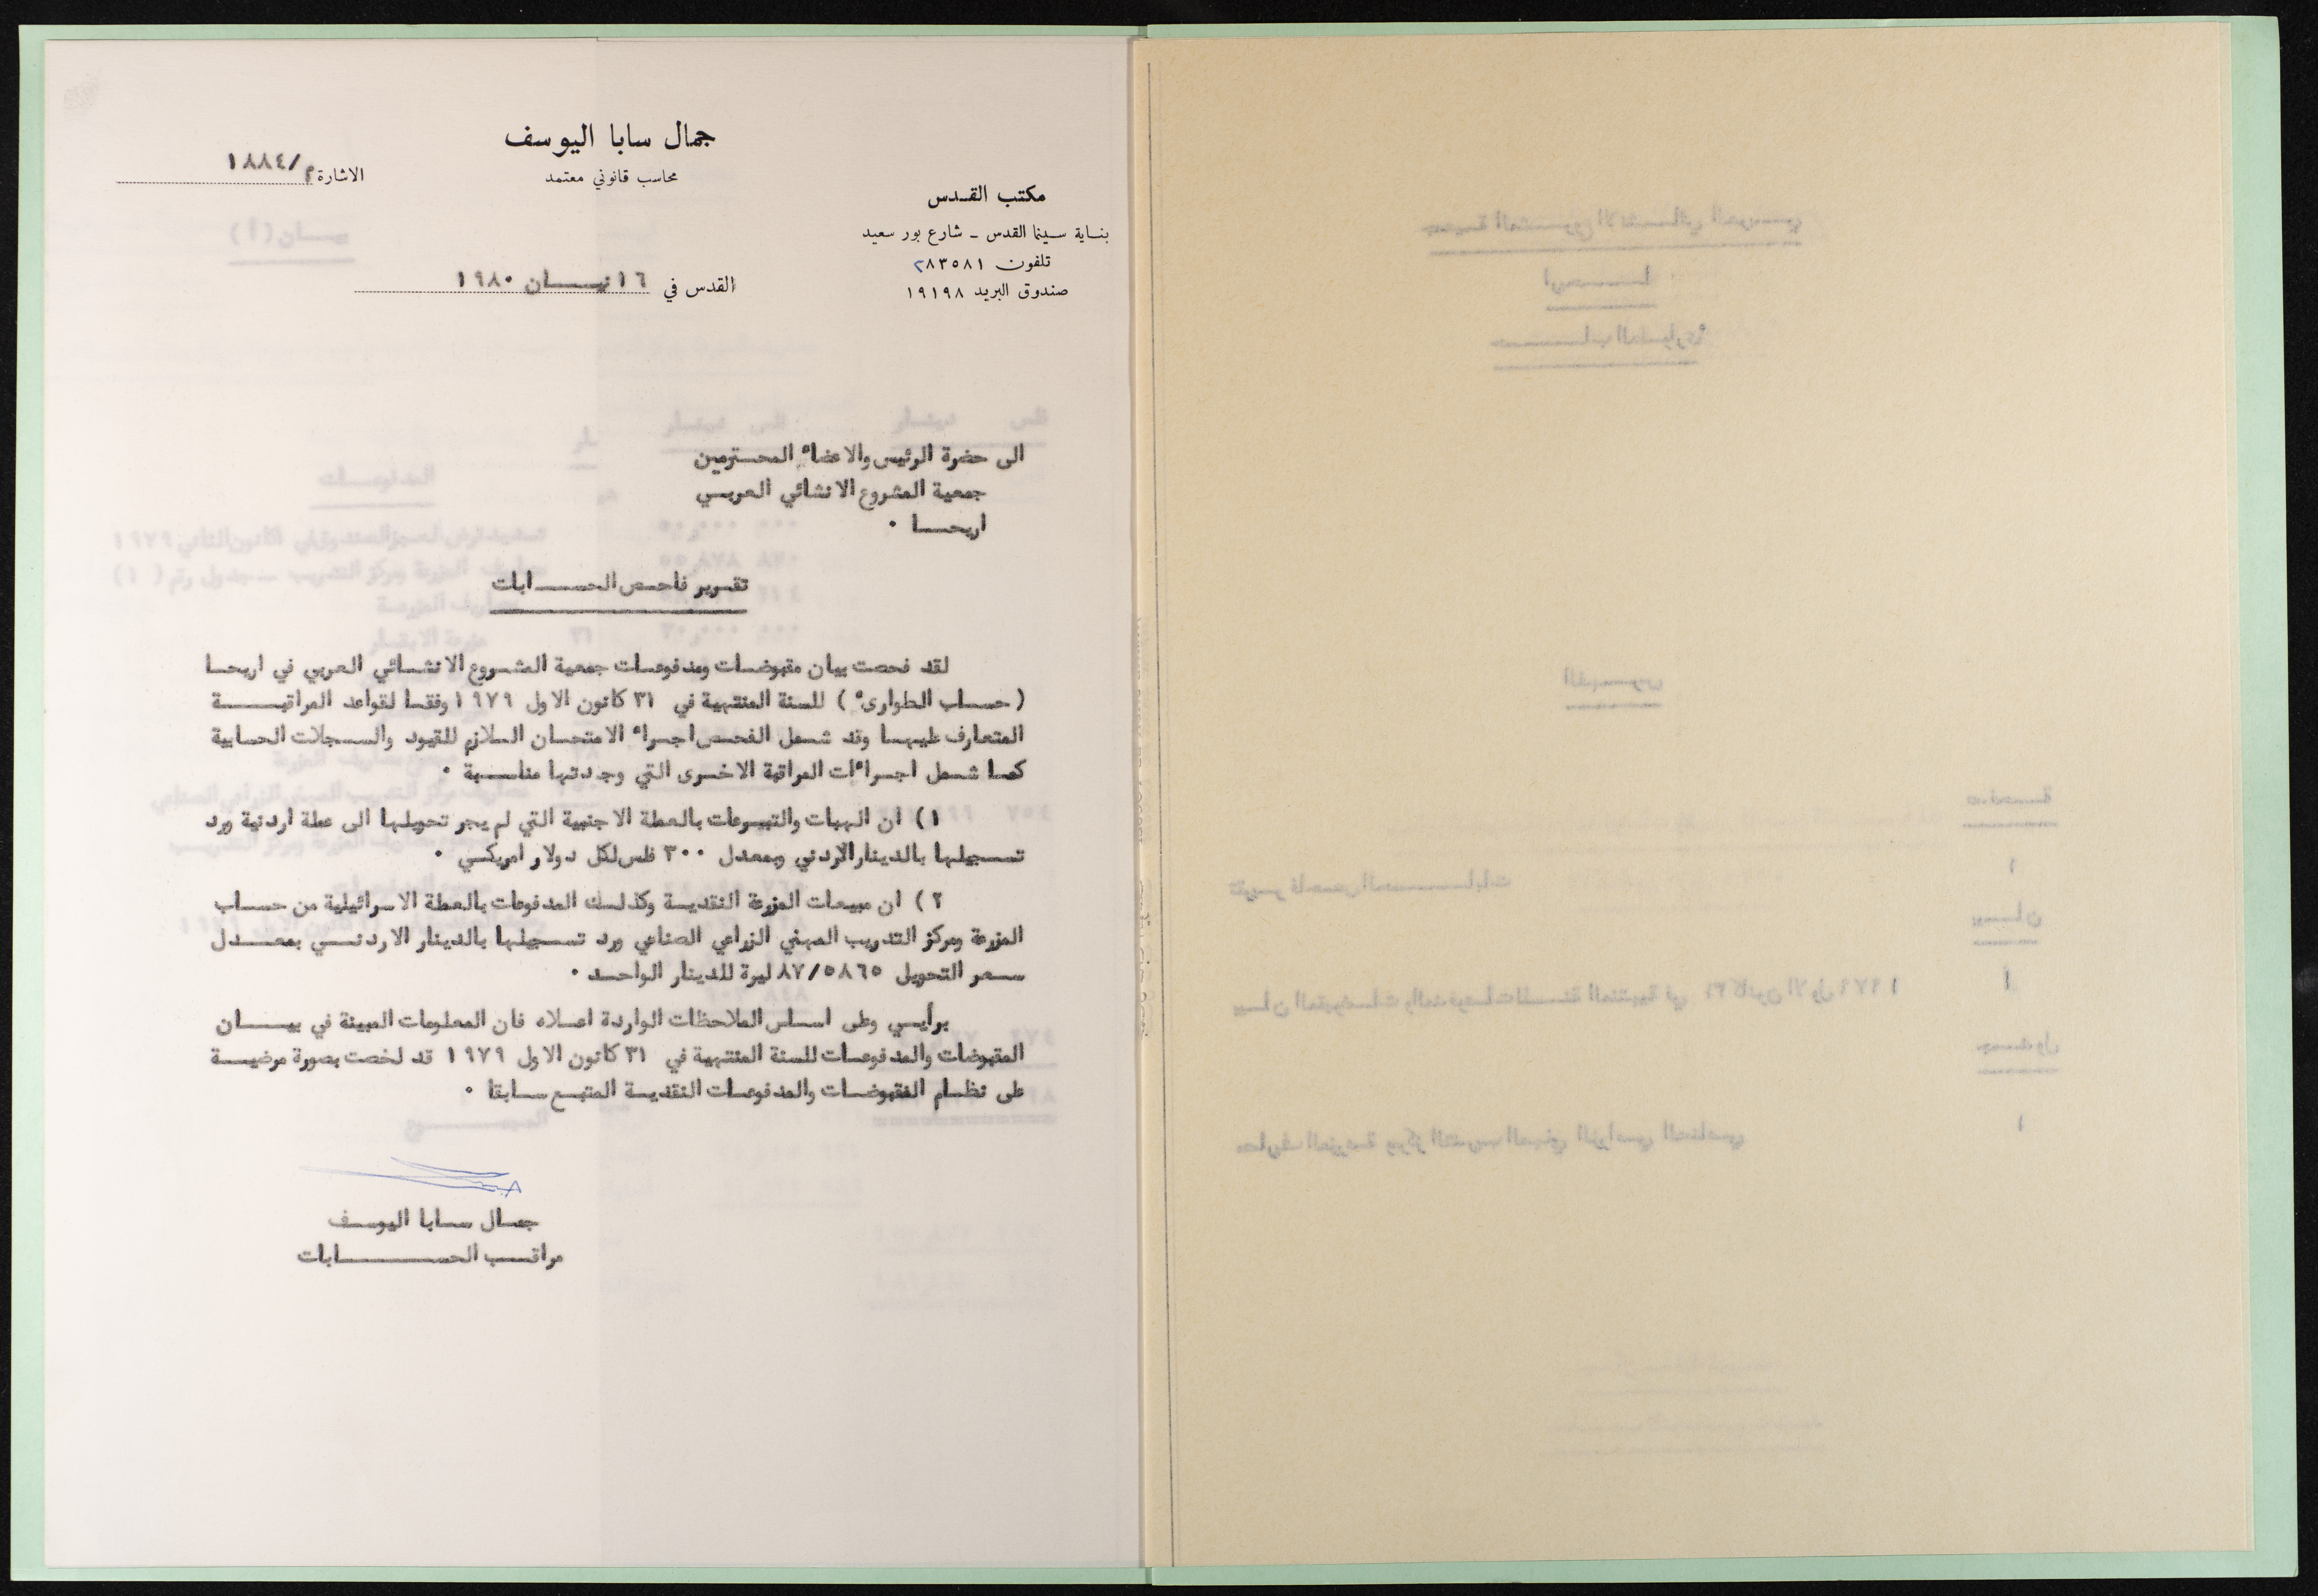 جمال سابا اليوسف
محاسب قانوني معتمد
الاشارة م/١٨٨٤
مكتب القدس
بناية سينما القدس - شارع بور سعيد
تلفون ٢٨٣٥٨١
صندوق البريد ١٩١٩٨
القدس في ١٦ نيسان ١٩٨٠
الى حضرة الرئيس والاعضاء المحترمين
جمعية المشروع الانشائي العربي
اريحا ٠
تقرير فاحص الحسابات
لقد فحصت بيان مقبوضات ومدفوعات جمعية المشروع الانشائي العربي في اريحا
( حساب الطوارىء ) للسنة المنتهية في ٣١ كانون الاول ١٩٧٩ وفقا لقواعد المراقبة
المتعارف عليها وقد شمل الفحص اجراء الامتحان اللازم للقيود والسجلات الحسابية
كما شمل اجراءات المراقبة الاخرى التي وجدتها مناسبة ٠
١ ) ان الهبات والتبرعات بالعملة الاجنبية التي لم يجر تحويلها الى عملة اردنية ورد
تسجيلها بالدينار الاردني وبمعدل ٣٠٠ فلس لكل دولار امريكي ٠
٢ ) ان مبيعات المزرعة النقدية وكذلك المدفوعات بالعملة الاسرائيلية من حساب
المزرعة ومركز التدريب المهني الزراعي الصناعي ورد تسجيلها بالدينار الاردني بمعدل
سعر التحويل ٨٧/٥٨٦٥ ليرة للدينار الواحد ٠
برأيي وعلى اساس الملاحظات الواردة اعلاه فان المعلومات المبينة في بيان
المقبوضات والمدفوعات للسنة المنتهية في ٣١ كانون الاول ١٩٧٩ قد لخصت بصورة مرضية
على نظام المقبوضات والمدفوعات النقدية المتبع سابقا ٠
جمال سابا اليوسف
مراقب الحسابات